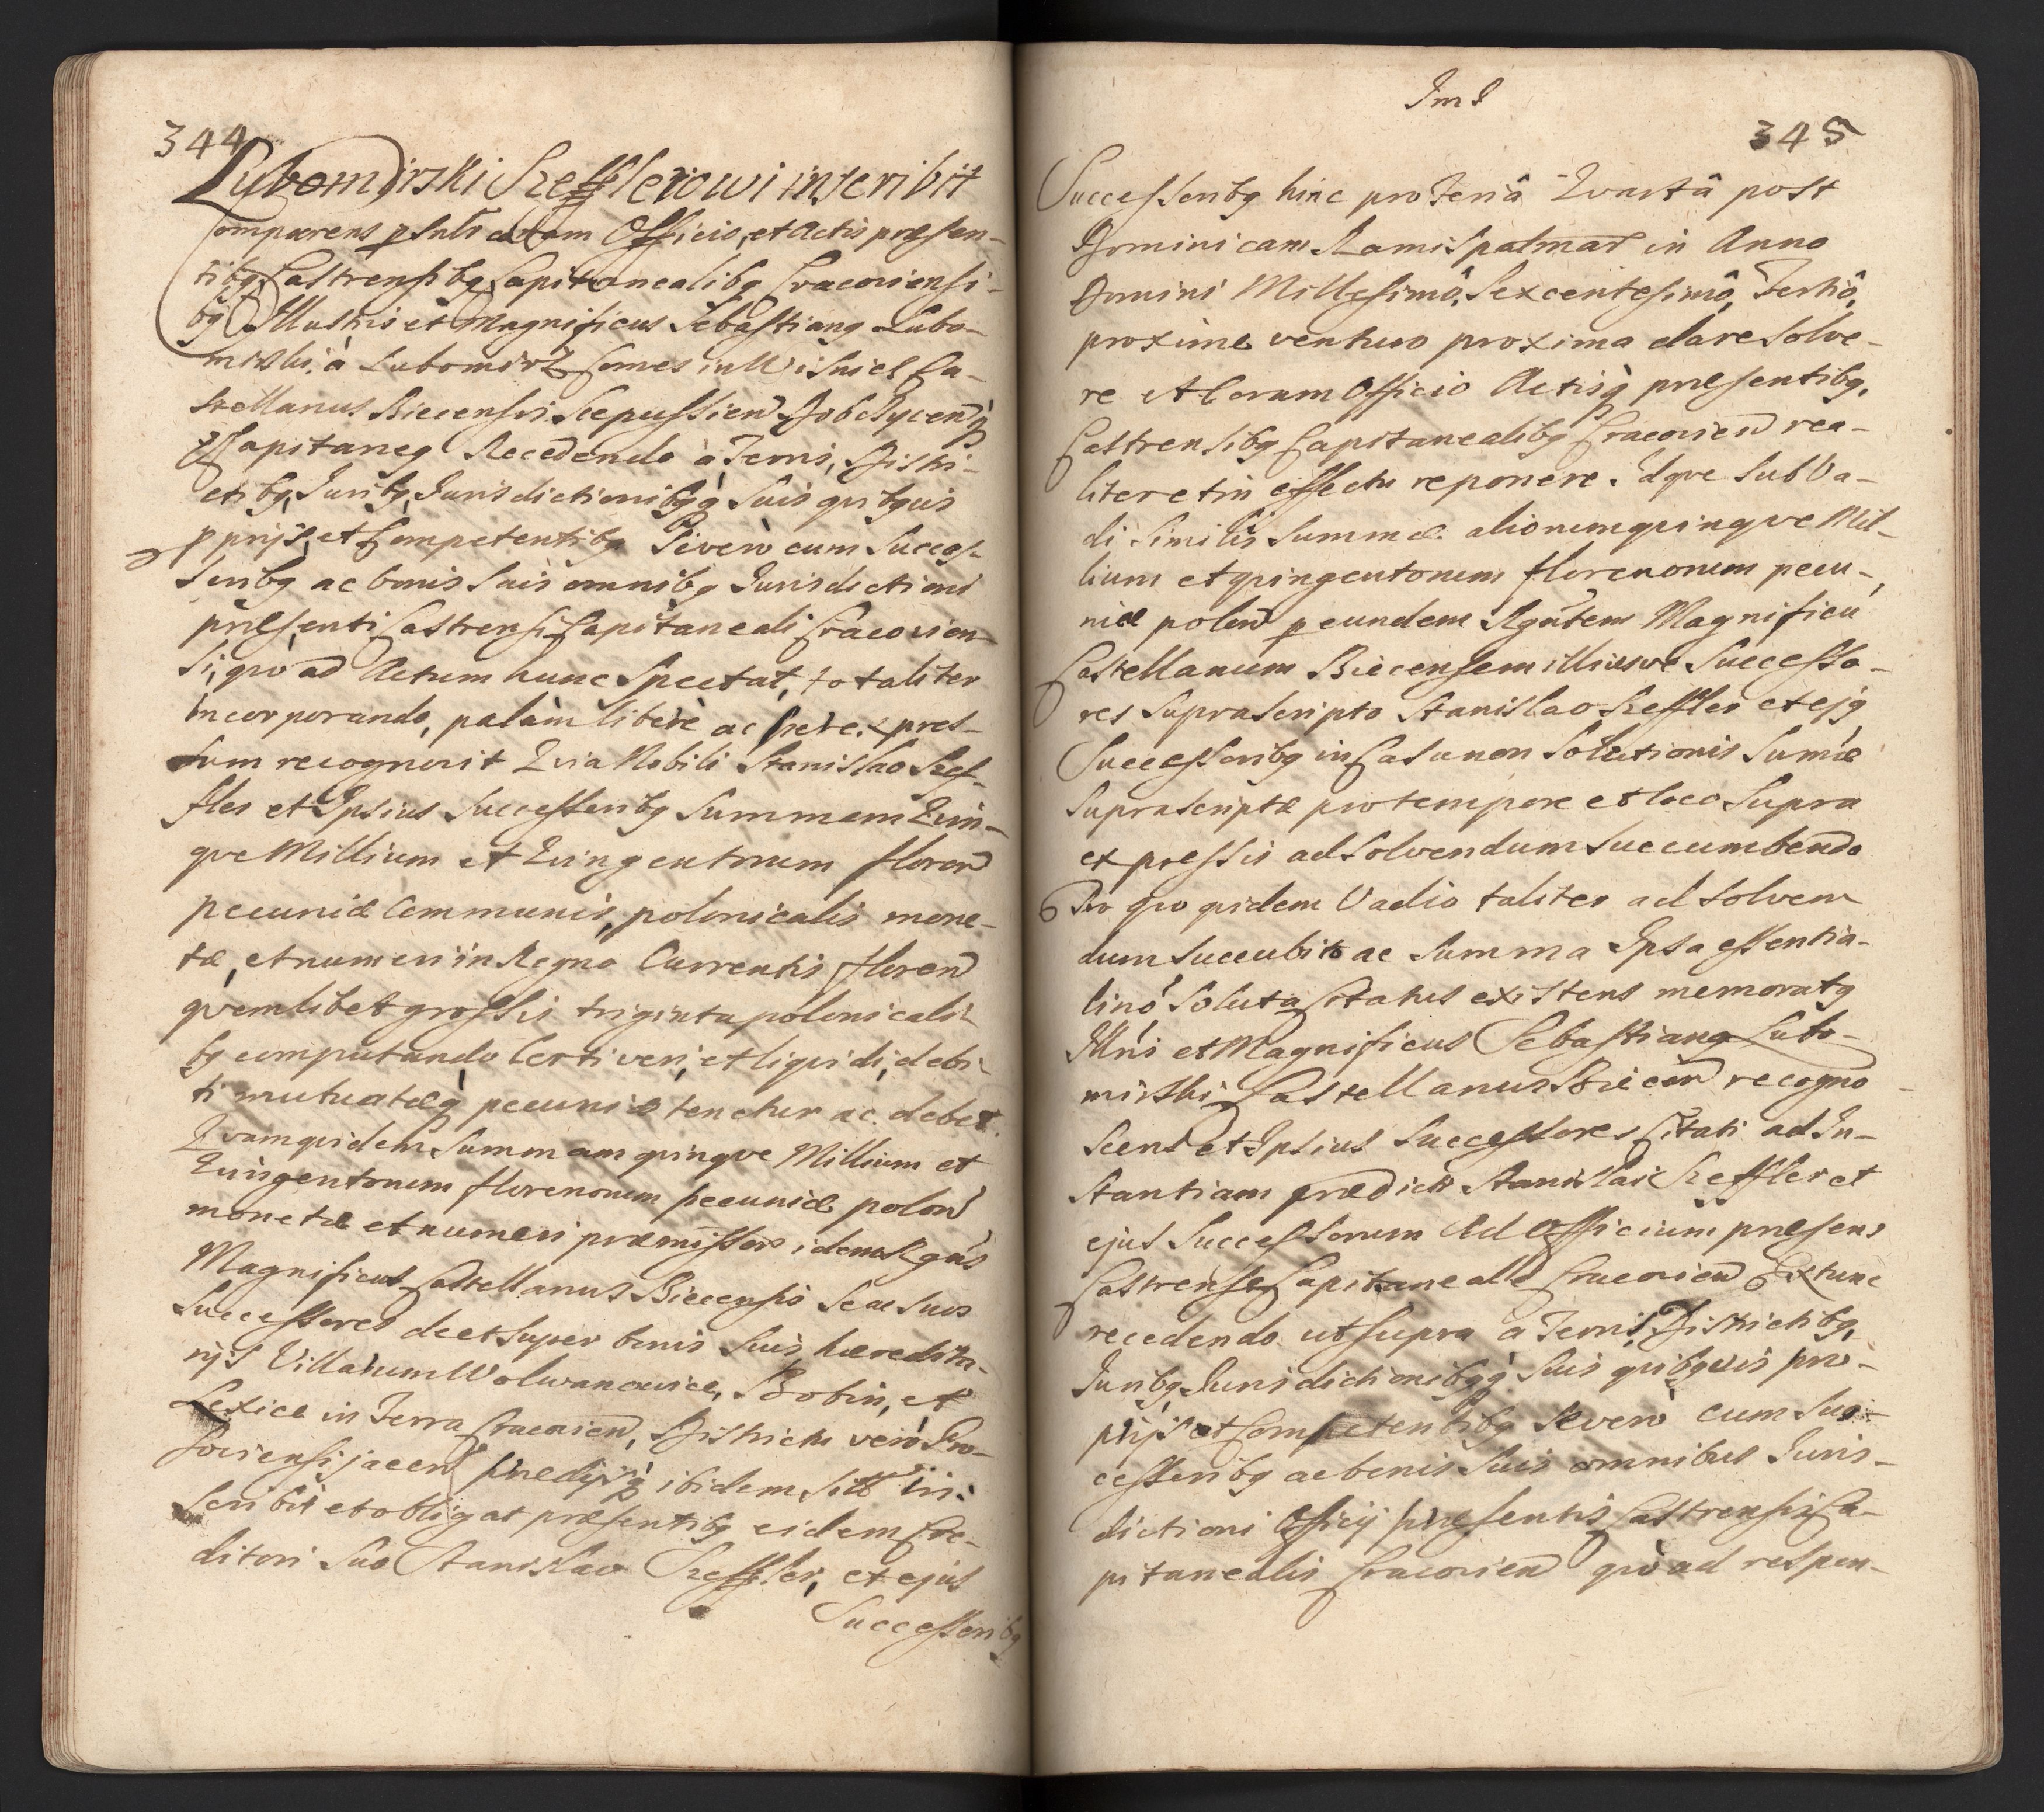 344
Lubomirski Szefflerowi inscribit
Comparens psnlr coram Officio, et Actis præsen-
tibg Castrensibg Capitanealibg Cracoviensi-
bg Illustris et Magnificus Sebastiang Lubo-
mirski à Lubomirz Comes in Wisnicz Ca-
stellanus Biecensis Scepussien Dobczycenq
Capitaneg Recedendo à Terris, Distri-
ctibg, Juribg, Jurisdictionibgq Suis qvibgvis
pprijs, et Competentibg Severò cum Succes-
soribg ac bonis Suis omnibg Jurisdictioni
præsenti Castrensi Capitaneali Cracovien-
si, qvò ad Actum hunc Spectat, totaliter
incorporando, palàm liberè ac per expres-
sum recognovit Qvia Nobili Stanislao Szef-
fler et Ipsius Successoribg Summam Qvin-
qve Millium et Qvingentorum floren
pecuniæ Communis, polonicalis mone-
tæ, et numeri in Regno Currentis floren
qvemlibet grossis triginta polonicali-
bg computando Certi veri, et liqvidi, debi-
ti mutuatæq pecuniæ tenetur ac debet.
Qvamqvidem Summam qvinqve Millium et
Qvingentorum florenorum pecuniæ polon
monetæ et numeri præmissor idem Rgñs
Magnificus Castellanus Biecensis Se ac Suos
Successores de et Super bonis Suis hæredita-
rijs Villarum Wolwanowice, Bobin, et
Lexice in Terra Cracovien, Districtu verò Pro-
szoviensi jacen prædijsq ibidem Sitt in-
scribit et obligat præsentibg eidem Cre-
ditori Suo Stanislao Szeffler, et ejus
Successoribg
Im I
345
Successoribg hinc pro Feriâ Qvartâ post
Dominicam Ramispalmar in Anno
Domini Millesimô, Sexcentesimô, Tertiô,
proxime venturo proxima dare Solve-
re et Coram Officio Actisq præsentibg,
Castrensibg Capitanealibg Cracovien rea-
liter et in effectu reponere. Idqve Sub Va-
di Similis Summæ aliorum qvinqve Mil-
lium et qvingentorum florenorum pecu-
niæ polon p eundem Rgñtem Magnificũ
Castellanum Biecensem illiusve Successo-
res Suprascripto Stanislao Szeffler et ejg
Successoribg in Casu non Solutionis Sumæ
Suprascriptæ pro tempore et loco Supra
expressis ad Solvendum Succumbendo
Pro qvo qvidem Vadio taliter ad Solven
dum Succubito ac Summa Ipsa essentia-
li nó Soluta Citatus existens memoratg
Illñs et Magnificus Sebastiang Lubo-
mirski Castellanus Biecen recogno-
scens et Ipsius Successores Citati ad In-
stantiam prædicti Stanislai Szeffler et
ejus Successorum Ad Officium præsens
Castrense Capitaneale Cracovien Extunc
recedendo ut Supra à Terris, Districtibg,
Juribg, Jurisdictionibgq Suis qvibgvis pro-
prijs et Competentibg Severò cum Suc-
cessoribg ac bonis Suis omnibus Juris-
dictioni Officij præsentis Castrensis Ca-
pitanealis Cracovien qvò ad respon-